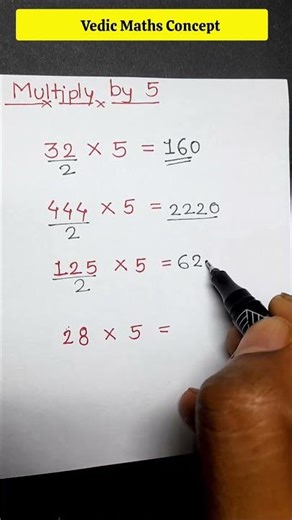 Vedic Maths Concept
Multiply by 5
32/2 × 5 = 160
444/2 × 5 = 2220
125/2 × 5 = 62
28 × 5 =